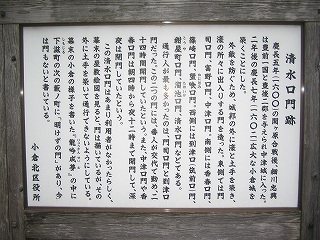 清水口門跡
慶長五年(一六〇〇)の関ヶ原合戦後、細川忠興
は豊前一国と豊後二郡を与えられ中津城に入った。
二年後の慶長七年(一六〇二)広大な小倉城を
築くことにした。
外敵を防ぐため、城郭の外に濠と土塁を築き、
濠の所々に出入りする門を造った。東側では門
司口門、富野口門、中津口門、南側には香春口門、
篠崎口門、蟹喰口門、西側には到津口(筑前口)門、
紺屋町口門、溜池口門、清水口門などである。
通行人が最も多かったのは、門司口門と到津口
門だった。この二つの門には、番人が交代で勤め二
十四時間開門していたという。また、中津口門や香
春口門は朝四時から夜十二時まで開門して、深
夜は閉門していたという。
この清水口門はあまり利用者がなかったらしく、
幕末の屋敷絵図を見ると、門は描いているが、その
外に土手を築いて通行できないようにしている。
幕末の小倉の様子を書いた、「龍吟成夢」の中に
下滋町の次の薮ノ町に、「明けずの門」があり、今
は門もないと書いている。
小倉北区役所